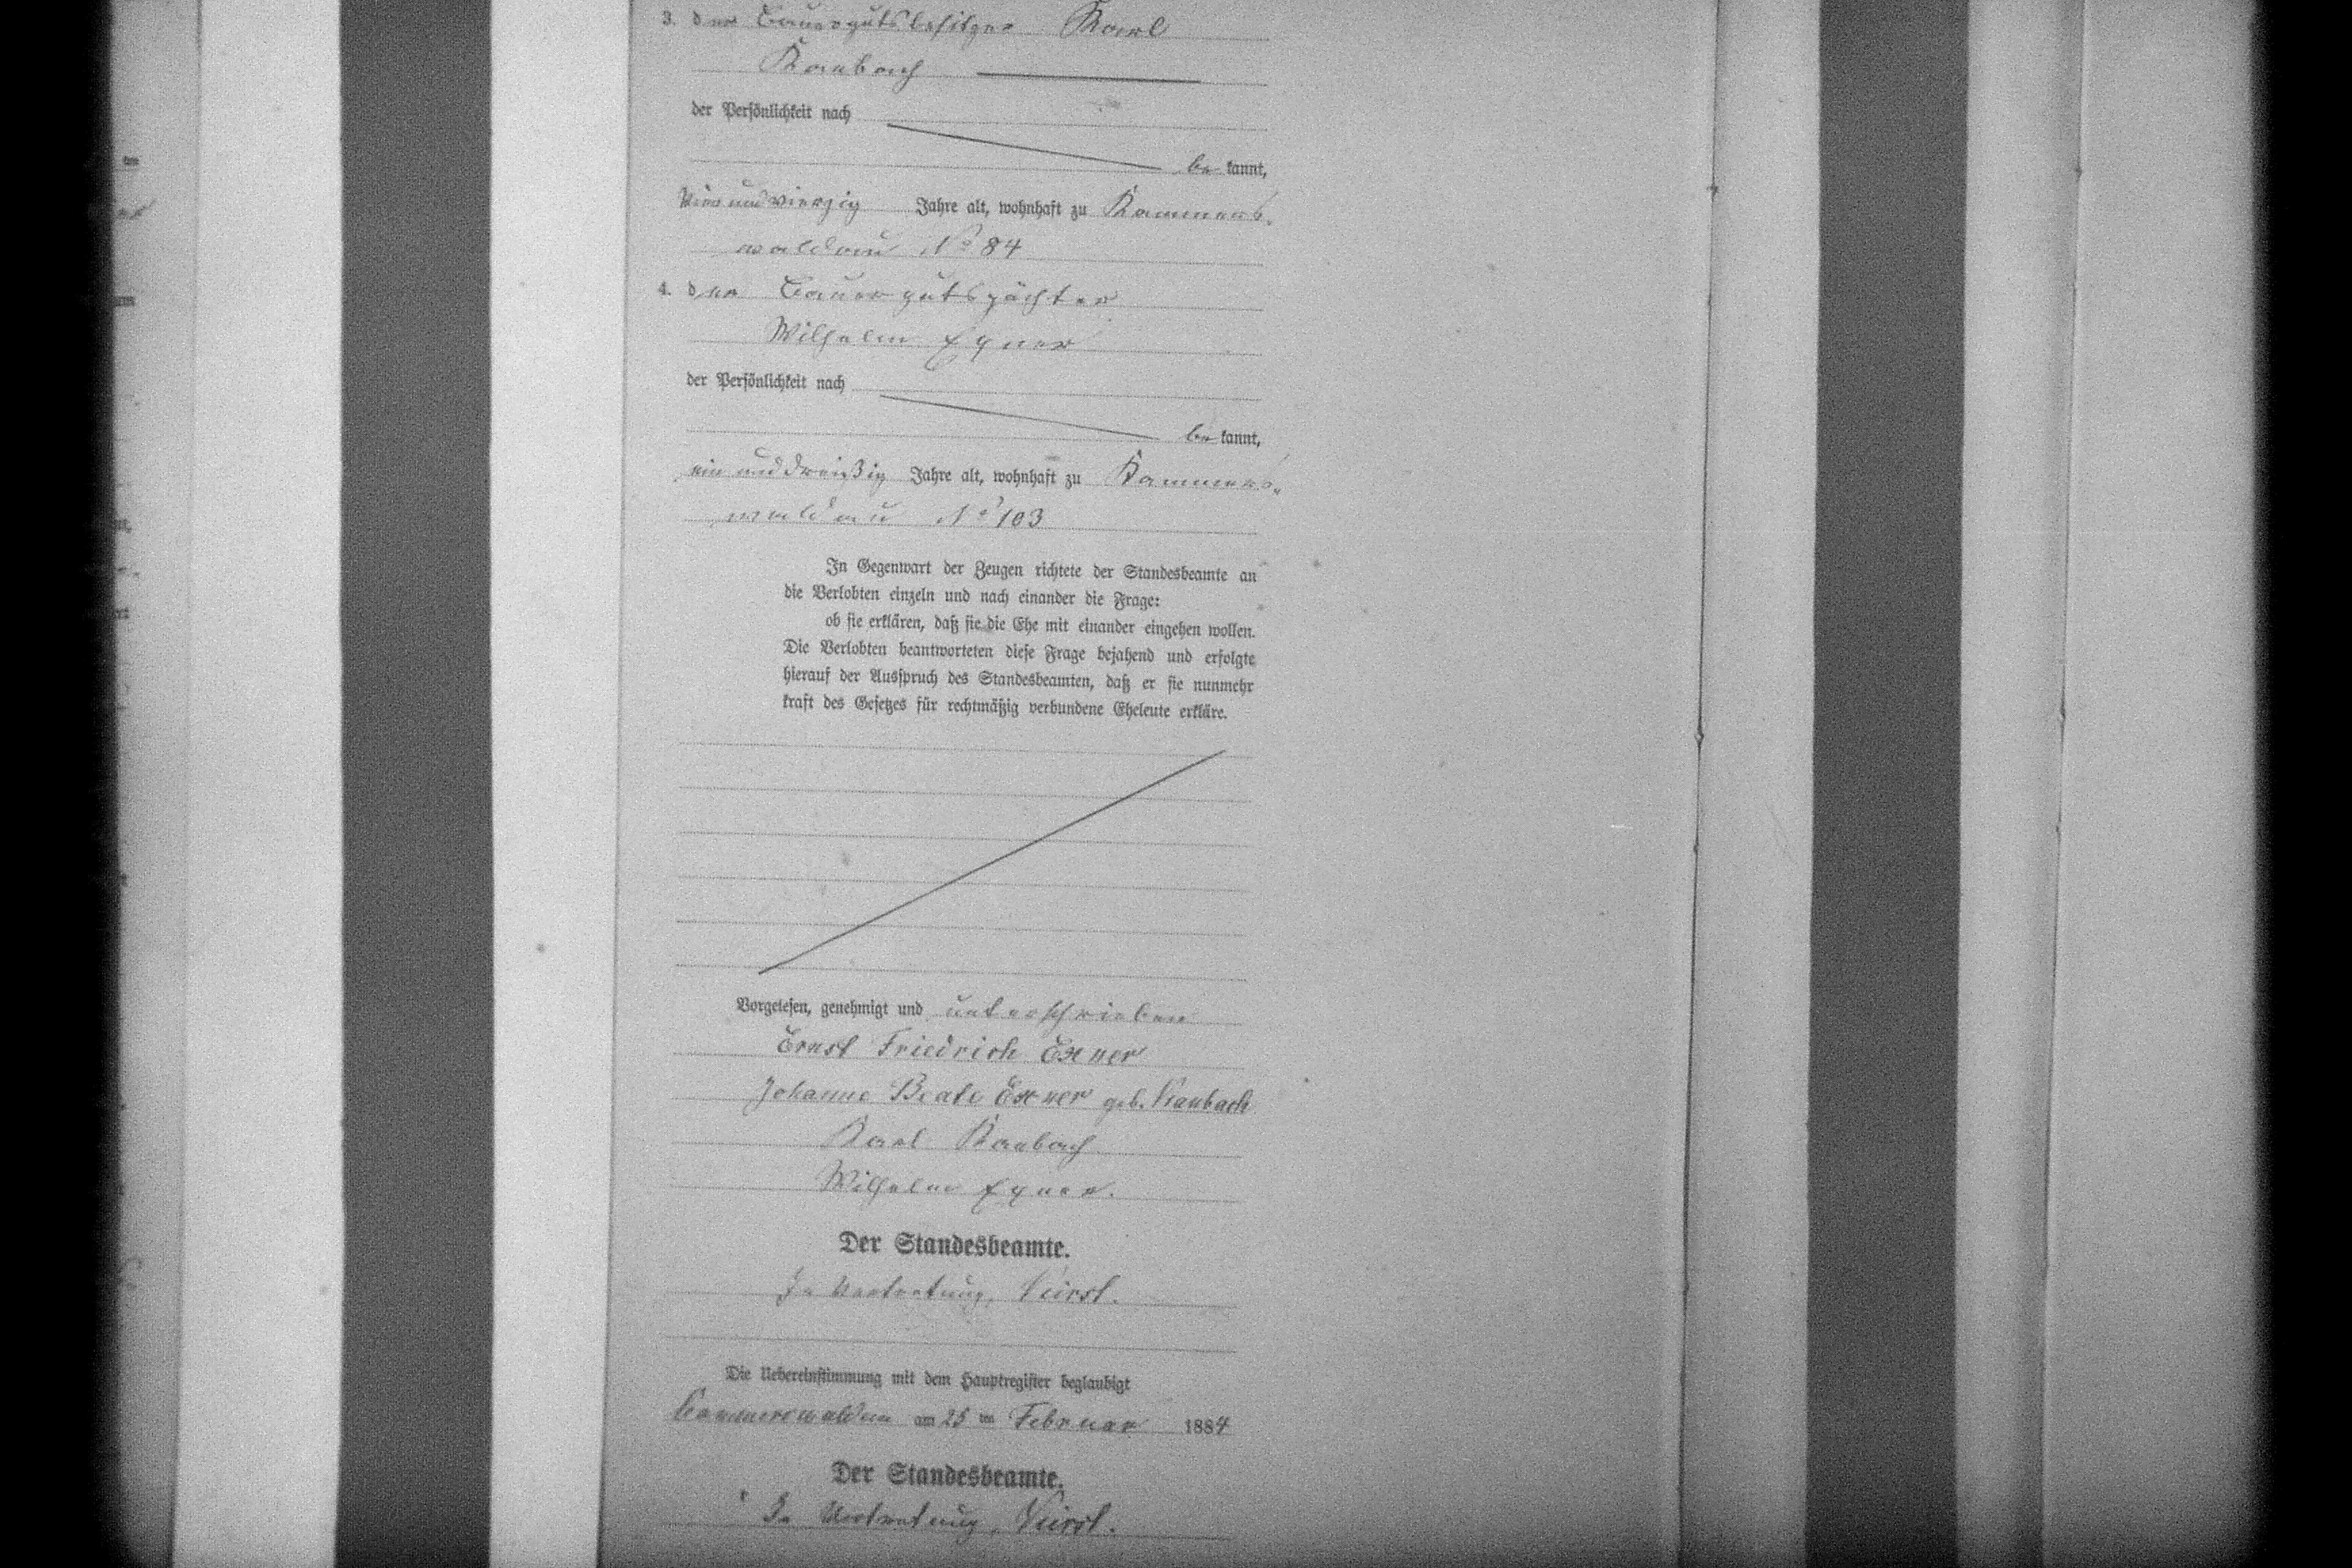 3. der Bauergutsbesitzer Karl
Raubach
der Persönlichkeit nach
be kannt,
vierundvierzig Jahre alt, wohnhaft zu Kammers-
waldau No 84
4. der Bauergutspächter
Wilhelm Exner
der Persönlichkeit nach
be kannt,
ein und dreißig Jahre alt, wohnhaft zu Kammers-
waldau No 103
In Gegenwart der Zeugen richtete der Standesbeamte an
die Verlobten einzeln und nach einander die Frage:
ob sie erklären, daß sie die Ehe mit einander eingehen wollen.
Die Verlobten beantworteten diese Frage bejahend und erfolgte
hierauf der Ausspruch des Standesbeamten, daß er sie nunmehr
kraft des Gesetzes für rechtmäßig verbundene Eheleute erkläre.
Vorgelesen, genehmigt und unterschrieben
Ernst Friedrich Exner
Johanne Beate Exner geb. Raubach
Karl Raubach
Wilhelm Exner.
Der Standesbeamte.
In Vertretung,
Die Uebereinstimmung mit dem Hauptregister beglaubigt
Kammerswaldau am 25 ten Februar 1884
Der Standesbeamte.
In Vertretung,